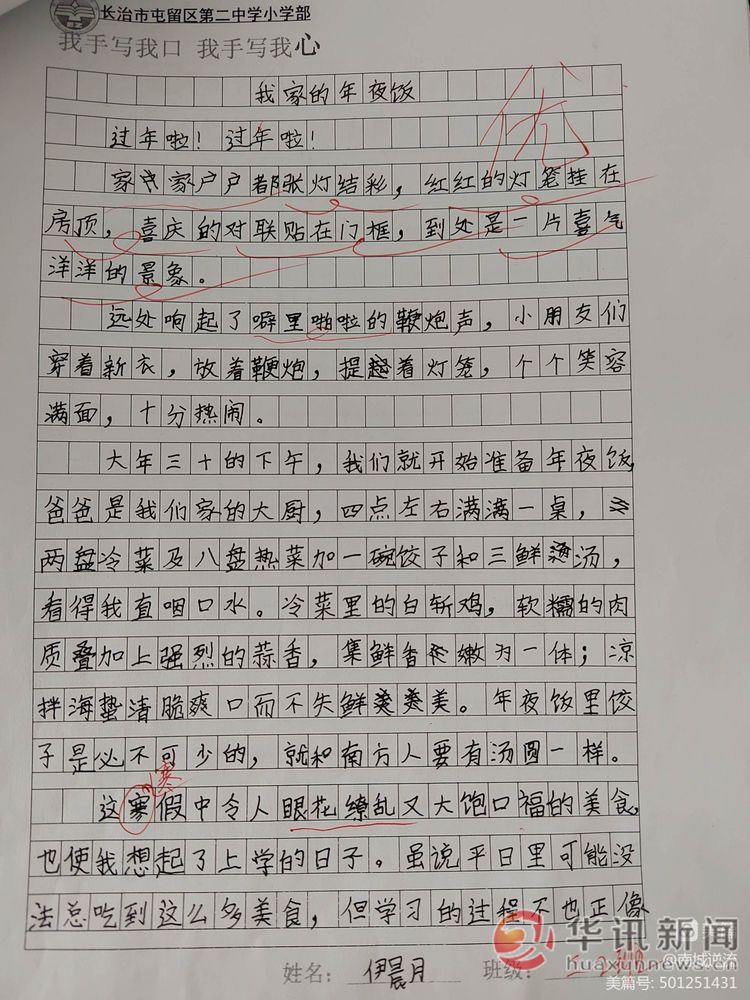 长治市屯留区第二中学小学部
我手写我口 我手写我心
我家的年夜饭
优
过年啦！过年啦！
家家户户都张灯结彩，红红的灯笼挂在
房顶，喜庆的对联贴在门框，到处是一片喜气
洋洋的景象。
远处响起了噼里啪啦的鞭炮声，小朋友们
穿着新衣，放着鞭炮，提起着灯笼，个个笑容
满面，十分热闹。
大年三十的下午，我们就开始准备年夜饭，
爸爸是我们家的大厨，四点左右满满一桌，
两盘冷菜及八盘热菜加一碗饺子和三鲜汤，
看得我直咽口水。冷菜里的白斩鸡，软糯的肉
质叠加上强烈的蒜香，集鲜香嫩为一体；凉
拌海蛰清脆爽口而不失鲜美。年夜饭里饺
子是必不可少的，就和南方人要有汤圆一样。
寒
这寒假中令人眼花缭乱又大饱口福的美食，
也使我想起了上学的日子。虽说平日里可能没
法总吃到这么多美食，但学习的过程不也正像
姓名：伊晨月 班级：
华讯新闻
huaxunnews.cn
@南城逆流
美篇号: 501251431